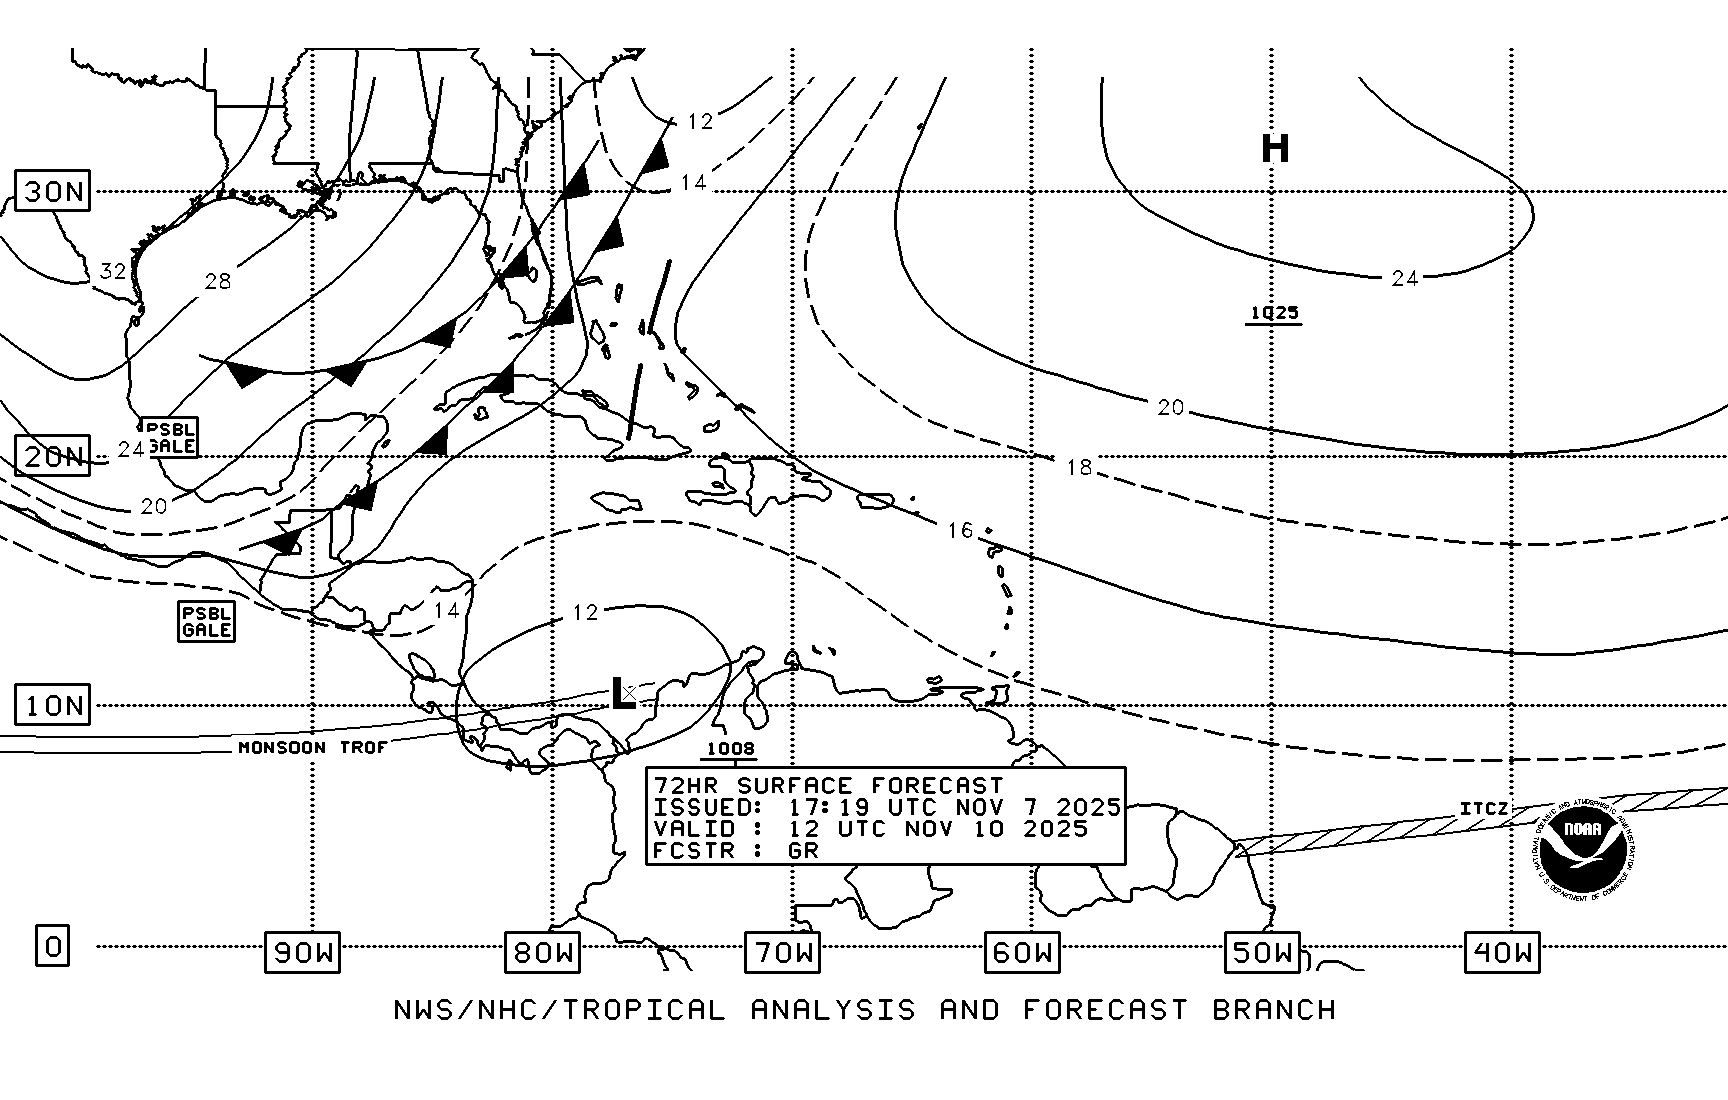 12
30N
H
14
32
28
24
1025
20
PSBL
GALE
24
20N
18
20
16
PSBL
GALE
14
12
L
10N
MONSOON TROF
1008
72HR SURFACE FORECAST
ISSUED: 17:19 UTC NOV 7 2025
VALID : 12 UTC NOV 10 2025
FCSTR : GR
ITCZ
NOAA
NATIONAL OCEANIC AND ATMOSPHERIC ADMINISTRATION
U.S. DEPARTMENT OF COMMERCE
0
90W
80W
70W
60W
50W
40W
NWS/NHC/TROPICAL ANALYSIS AND FORECAST BRANCH